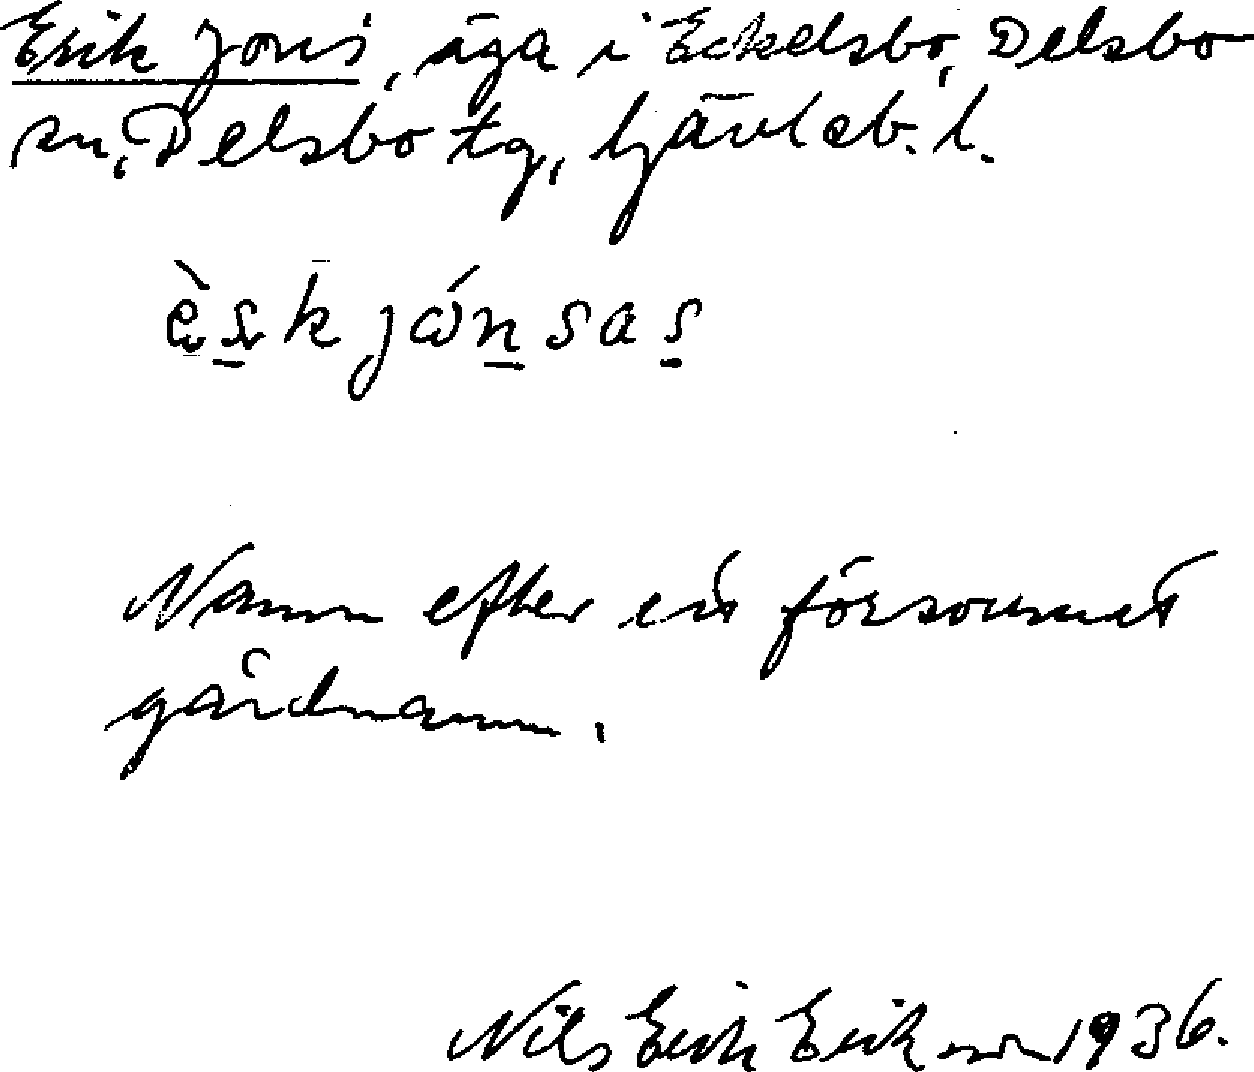 Erik Jons, äga i Eckelsbo, Delsbo
sn, Delsbo tg, Gävleb. l.
èskjónsas
Namn efter ett försvunnet
gårdnamn.
Nils Erik Eriksson 1936.